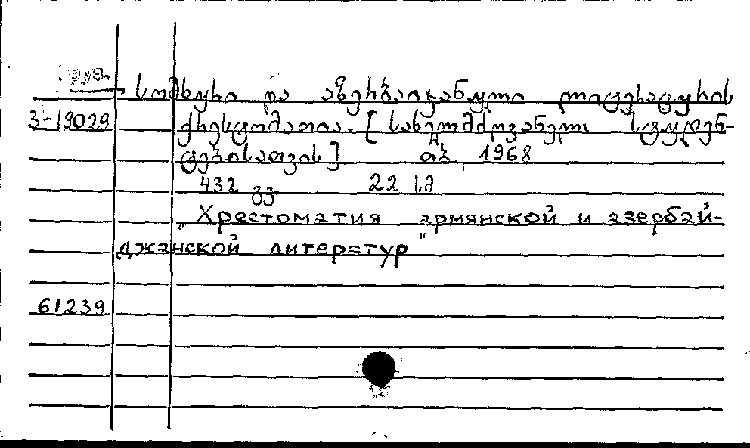 სომხური და აზერბაიჯანული ლიტერატურის
3-19029 ქრესტომათია. [სახელმძღვანელო სტუდენ-
ტებისათვის] თბ, 1968
432 გვ 22 სმ
„Хрестоматия армянской и азербай-
джанской литератур"
61239